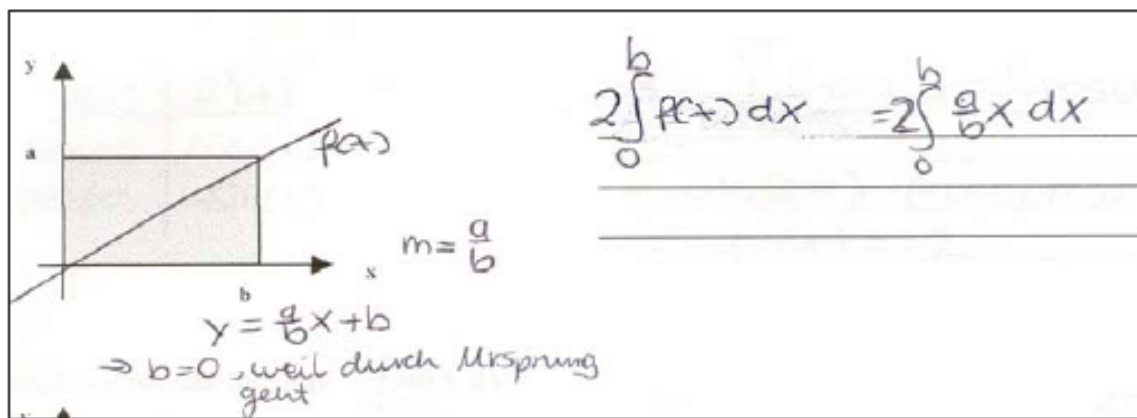 y
a
f(x)
x
b
m = a/b
y = a/b x + b
⇒ b = 0, weil durch Ursprung
geht
2 ∫₀ᵇ f(x) dx = 2 ∫₀ᵇ a/b x dx